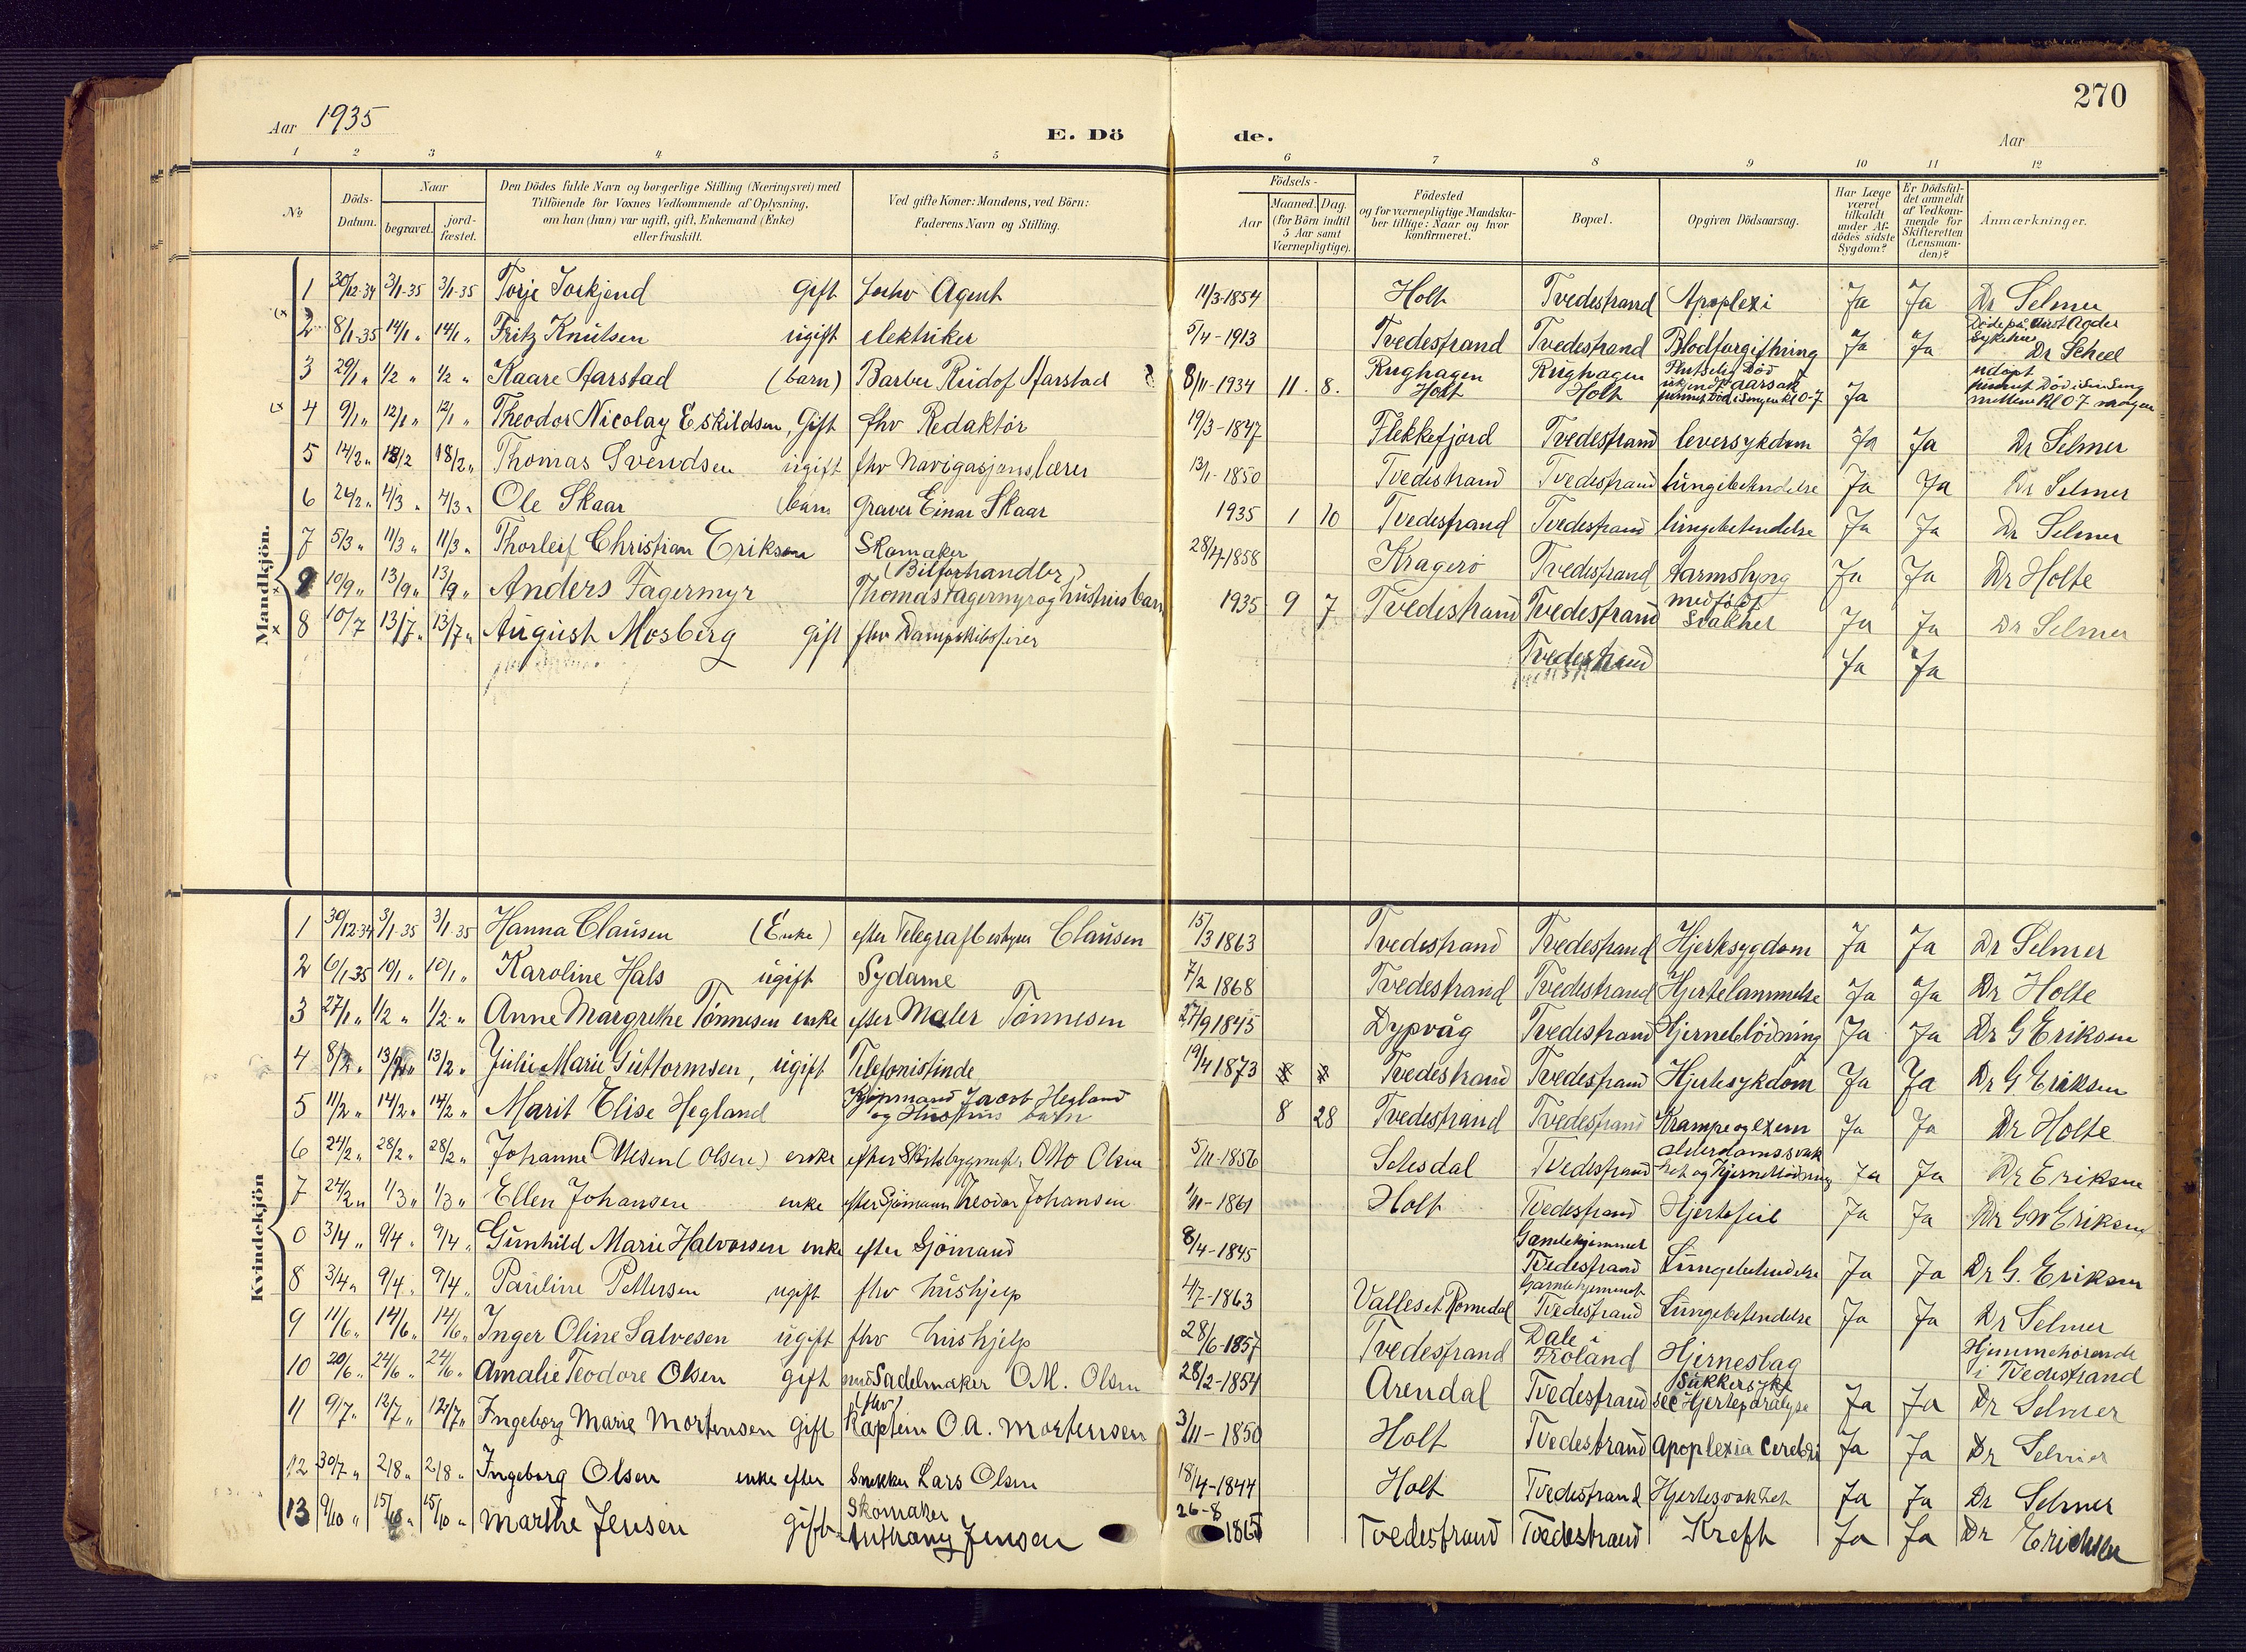 270
Aar 1935
E. Döde.
Aar
1 2 3 4 5 6 7 8 9 10 11 12
No
Döds-Datum.
Naar
begravet.
jord-fæstet.
Den Dödes fulde Navn og borgerlige Stilling (Næringsvei) med
Tilföiende for Voxnes Vedkommende af Oplysning,
om han (hun) var ugift, gift, Enkemand (Enke)
eller fraskilt.
Ved gifte Koner: Mandens, ved Börn:
Faderens Navn og Stilling.
Födsels-
Aar
Maaned. Dag.
(for Börn indtil
5 Aar samt
Værnepligtige).
Födested
og for værnepligtige Mandska-
ber tillige: Naar og hvor
konfirmeret.
Bopæl.
Opgiven Dödsaarsag.
Har Læge
været
tilkaldt
under Af-
dödes sidste
Sygdom?
Er Dödsfal-
det anmeldt
af Vedkom-
mende for
Skifteretten
(Lensman-
den)?
Anmærkninger.
Mandkjön.
1 30/12-34 3/1-35 3/1-35 Torje Gift Agent 11/3-1854 Holt Tvedestrand Apoplexi Ja Ja Dr Selmer
2 8/1-35 14/1 " 14/1 " Fritz Knutsen ugift elektriker 5/4-1913 Tvedestrand Tvedestrand Blodforgiftning Ja Ja Døde på Aust Agder Sykehus Dr Scheel
3 29/1 " 1/2 " 1/2 " Kaare Aarstad (barn) Barber Rudof Aarstad 8/11-1934 11. 8. Rughagen Holt Rughagen Holt Plutselig Død ukjendt aarsak Ja
4 9/1 " 12/1 " 12/1 " Theodor Nicolay Eskildsen, Gift fhv Redaktør 19/3-1847 Flekkefjord Tvedestrand leversykdom Ja Ja Dr Selmer
5 14/2 " 18/2 18/2 " Thomas Svendsen ugift fhv Navigasjonslærer 13/1-1850 Tvedestrand Tvedestrand lungebetendelse Ja Ja Dr Selmer
6 26/2 " 4/3 " 4/3 " Ole Skaar barn graver Einar Skaar 1935 1 10 Tvedestrand Tvedestrand lungebetendelse Ja Ja Dr Selmer
7 5/3 " 11/3 " 11/3 " Thorleif Christian Eriksen Skomaker 1858 Kragerø Tvedestrand Ja Ja Dr Holte
9 10/9 " 13/9 " 13/9 " Anders Fagermyr (Bilforhandler) Thomas Fagermyr og hustrus barn 1935 9 7 Tvedestrand Tvedestrand medfødt Svakhet Ja Ja Dr Selmer
8 10/7 13/7 " 13/7 " August Mosberg gift fhv Tvedestrand Ja Ja
Kvindekjön
1 30/12-34 3/1-35 3/1-35 Hanna Clausen (Enke) efter Telegrafbestyrer Clausen 15/3 1863 Tvedestrand Tvedestrand Hjertesygdom Ja Ja Dr Selmer
2 6/1-35 10/1 " 10/1 " Karoline Hals ugift Sydame 7/2 1868 Tvedestrand Tvedestrand Hjertelammelse Ja Ja Dr Holte
3 27/1 " 1/2 " 1/2 " Anne Margrethe Tønnesen enke efter Maler Tønnesen 27/9 1845 Dypvåg Tvedestrand Hjerneblødning Ja Ja Dr G Eriksen
4 8/2 " 13/2 " 13/2 " Julie Marie Guttormsen, ugift Telefonistinde 19/4 1873 Tvedestrand Tvedestrand Hjertesykdom Ja Ja Dr G Eriksen
5 11/2 " 14/2 " 14/2 " Marit Elise Hegland Kjøpmand Jacob Hegland og Hustrus barn 8 28 Tvedestrand Tvedestrand Krampe og exem Ja Ja Dr Holte
6 24/2 " 28/2 " 28/2 " Johanne Ottesen (Olsen) enke efter Skibsbyggmestr. Otto Olsen 5/11-1856 Setesdal Tvedestrand alderdomssvakhet og hjerneblødning Ja Ja Dr Eriksen
7 24/2 " 1/3 " 1/3 " Ellen Johansen enke efter Sjømann Theodor Johansen 1/11-1861 Holt Tvedestrand Hjertefeil Ja Ja Dr GW Eriksen
0 3/4 " 9/4 " 9/4 " Gunhild Marie Halvorsen enke efter Sjømand 8/4-1845 Gamlehjemmet Tvedestrand Lungebetendelse Ja Ja Dr G. Eriksen
8 3/4 " 9/4 " 9/4 " Pauline Pettersen ugift fhv hushjelp 4/7-1863 Valleset Romedal Gamlehjemmet Tvedestrand Lungebetendelse Ja Ja Dr Selmer
9 11/6 " 14/6 " 14/6 " Inger Oline Salvesen ugift fhv hushjelp 28/6-1857 Tvedestrand Dale i Froland Hjerneslag Hjemmehørende i Tvedestrand
10 20/6 " 24/6 " 24/6 " Amalie Teodore Olsen gift med Sadelmaker O.M. Olsen 28/2-1854 Arendal Tvedestrand Sukkersyke see Hjerteparalyse Ja Ja Dr Selmer
11 9/7 " 12/7 " 12/7 " Ingeborg Marie Mortensen Gift fhv Kaptein O.A. Mortensen 3/11-1850 Holt Tvedestrand Apoplexia Cerebri Ja Ja Dr Selmer
12 30/7 " 2/8 " 2/8 " Ingeborg Olsen enke efter Snekker Lars Olsen 18/4-1844 Holt Tvedestrand Hjertesvakhet Ja Ja Dr Selmer
13 9/10 " 15/10 " 15/10 " Marthe Jensen gift Skomaker Anthony Jensen 26-8 Tvedestrand Tvedestrand Kreft Ja Ja Dr Erichsen